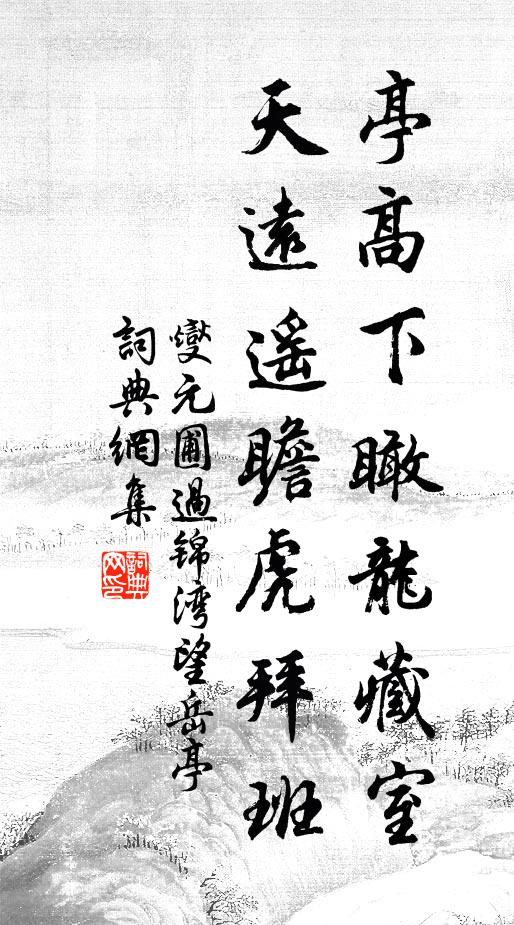 亭高下瞰龍藏室
天遠遥瞻虎拜班
燮元圃過锦湾望岳亭
詞典網集
詞典网印